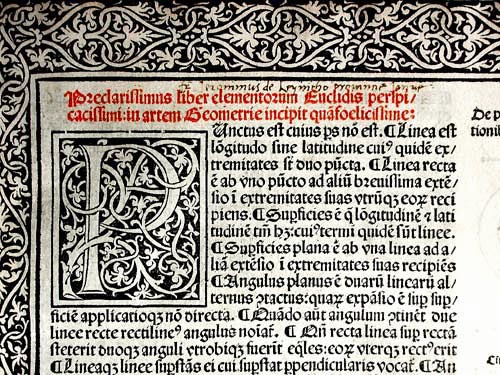 Preclarissimus liber elementorum Euclidis perspi/
cacissimi: in artem Geometrie incipit quãfoelicissime:
PUnctus est cuius ps nõ est. ¶ Linea est
lõgitudo sine latitudine cuiꝰ quidẽ ex/
tremitates st duo pũcta. ¶ Linea recta
ẽ ab vno pũcto ad aliũ breuissima extẽ/
sio ĩ extremitates suas vtrũqꝫ eoꝝ reci
piens. ¶ Supficies ẽ q̃ lõgitudinẽ ⁊ lati
tudinẽ tm̃ hꝫ: cuiꝰ termi quidẽ sũt linee.
¶ Supficies plana ẽ ab vna linea ad a/
liã extẽsio ĩ extremitates suas recipiẽs
¶ Angulus planus ẽ duarũ linearũ al/
ternus ꝯtactus: quaꝝ expãsio ẽ sup sup/
ficiẽ applicatioqꝫ nõ directa. ¶ Quãdo aũt angulum ꝯtinẽt due
linee recte rectilineꝰ angulus noiat̃. ¶ Qñ recta linea sup rectã
steterit duoqꝫ anguli vtrobiqꝫ fuerit eq̃les: eoꝝ vterqꝫ rectꝰ erit
¶ Lineaqꝫ linee supstãs ei cui supstat ppendicularis vocat̃. ¶ An
De p
tionib